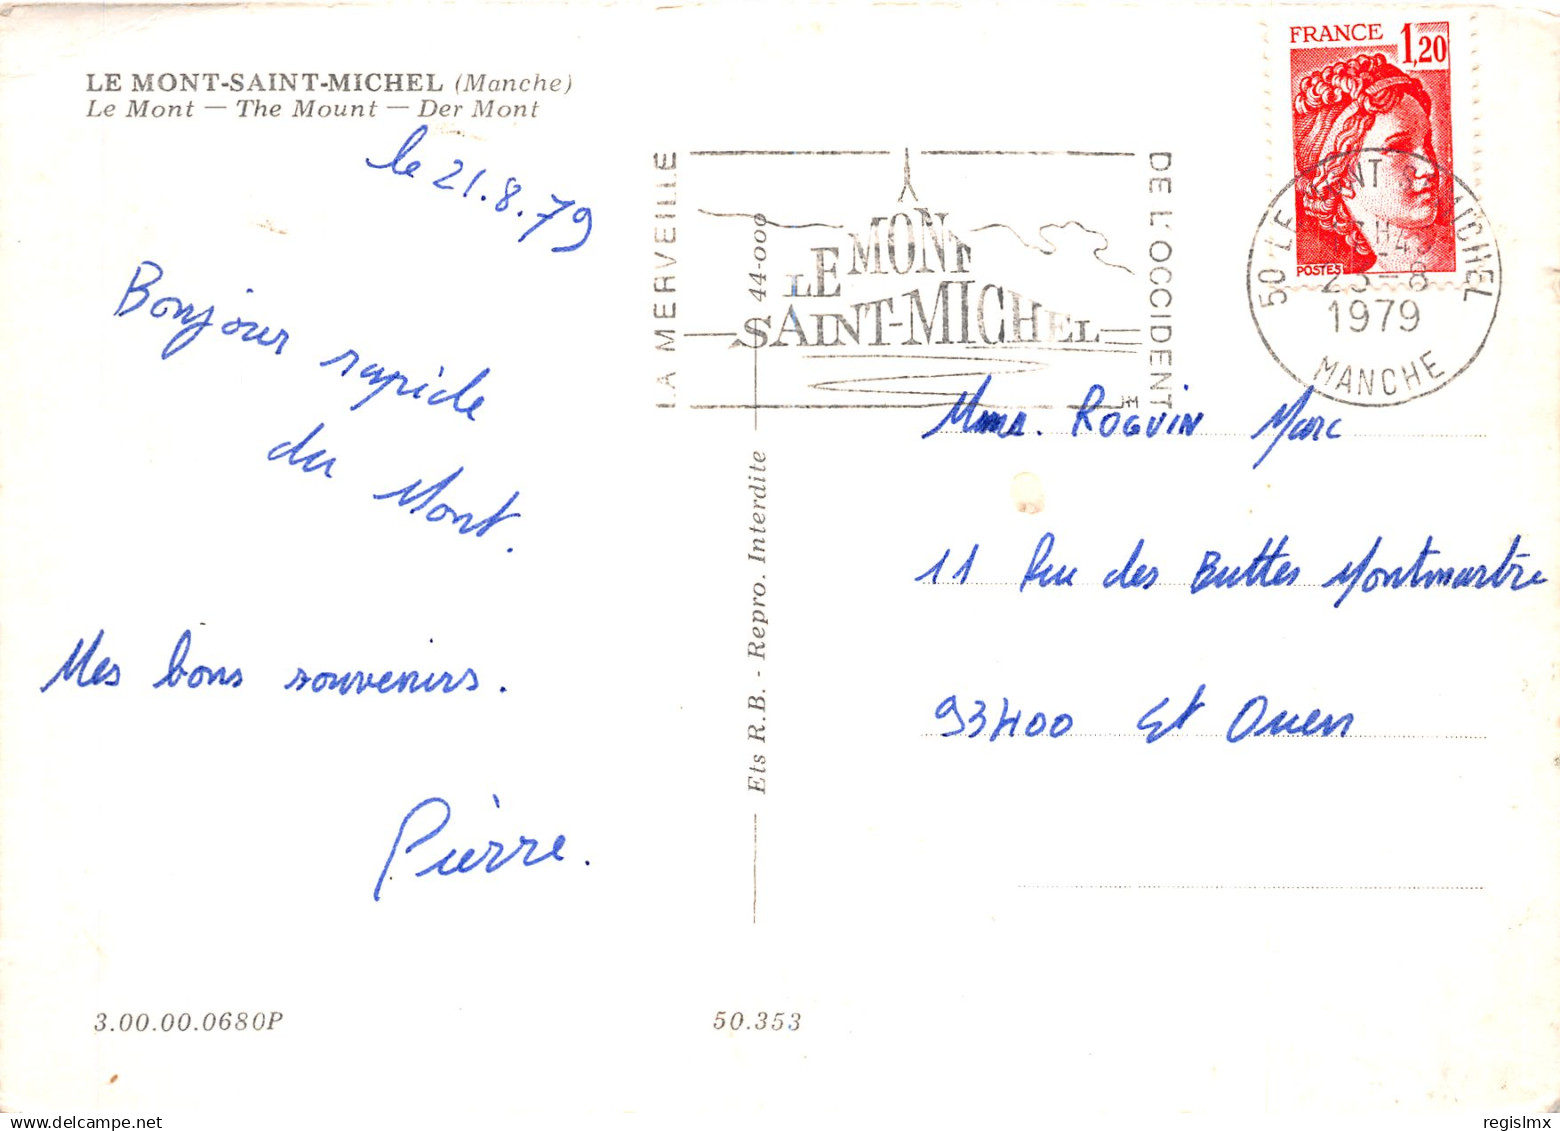 LE MONT-SAINT-MICHEL (Manche)
Le Mont — The Mount — Der Mont
le 21.8.79
Bonjour rapide
du Mont.
Mes bons souvenirs.
Pierre.
3.00.00.0680P
50.353
Ets R.B. - Repro. Interdite
44-000
LA MERVEILLE
LE MONT
SAINT-MICHEL
DE L'OCCIDENT
FRANCE 1,20
POSTES
50 LE MONT ST MICHEL
-8
1979
MANCHE
ROGUIN Marc
11 Rue des Buttes Montmartre
93400 St Ouen
regislmx